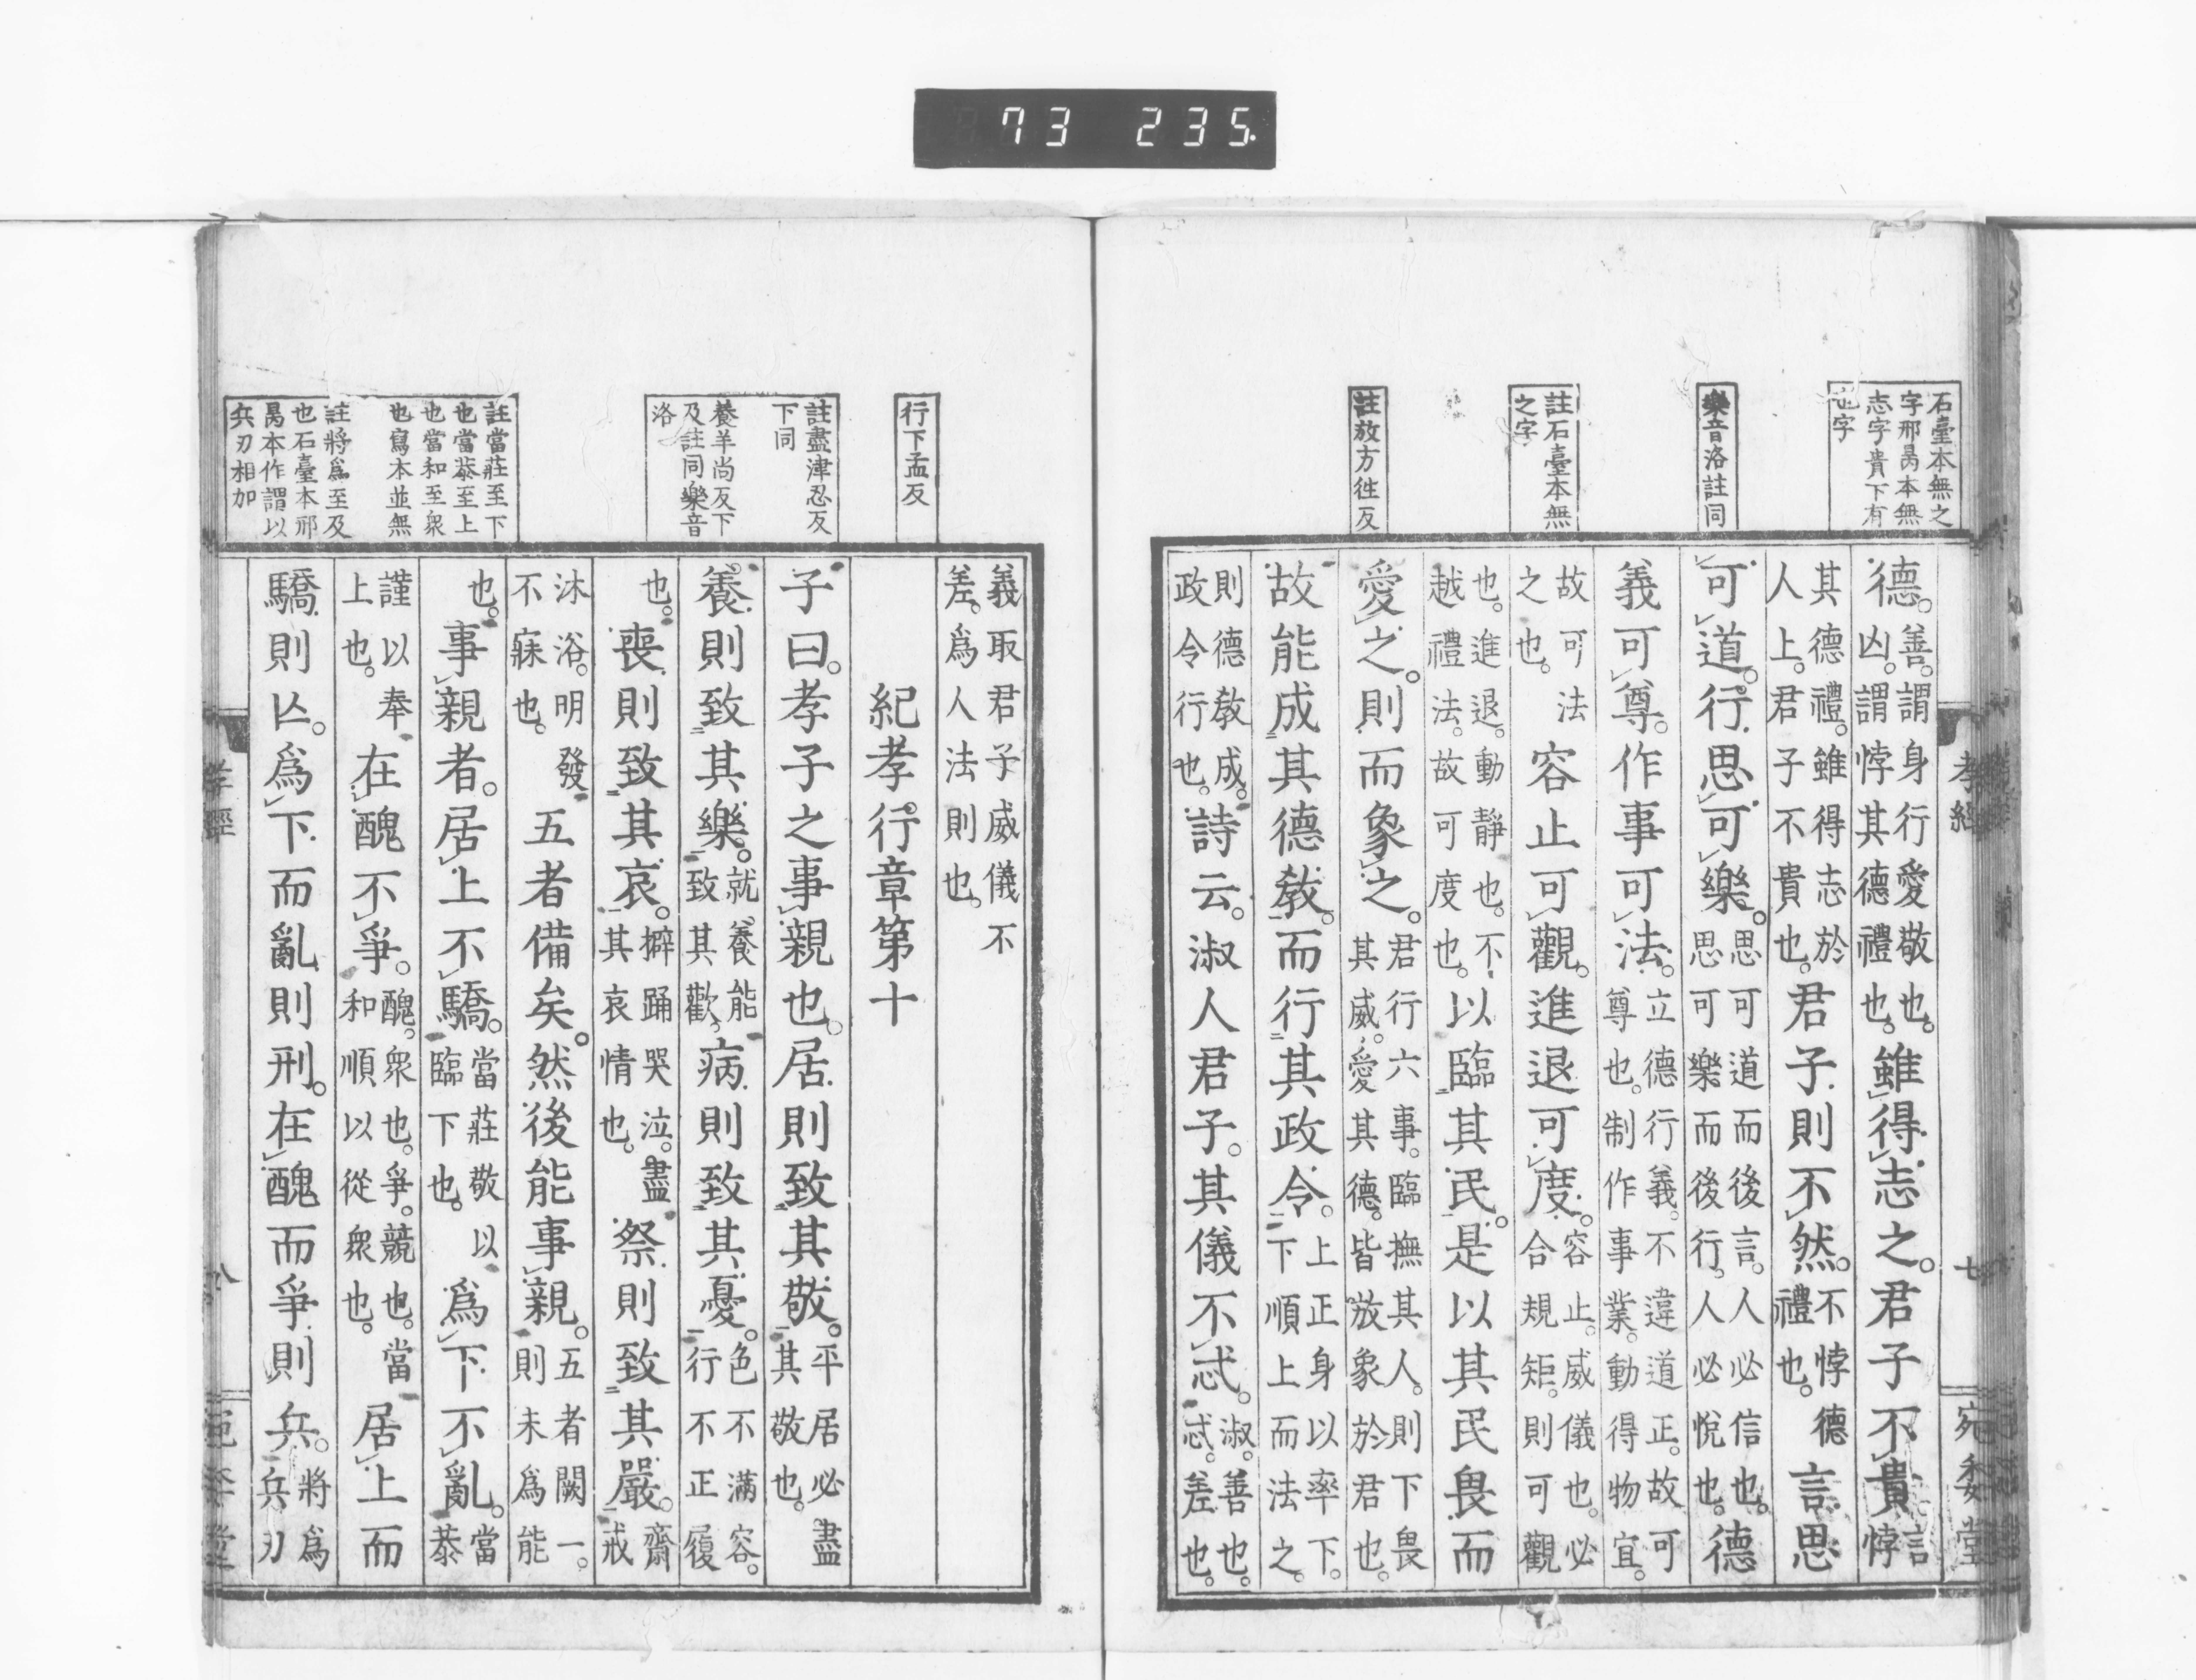 73 235.
石臺本無之
字邢昺本無
志字貴下有
也字
樂音洛註同
註石臺本無
之字
註放方徃反
孝經
七
宛委堂
德。善。謂身行愛敬也。凶。謂悖其德禮也。雖得志之。君子不貴言悖
其德禮。雖得志於人上。君子不貴也。君子則不然。不悖德禮也。言思
可道。行思可樂。思可道而後言。人必信也。思可樂而後行。人必悅也。德
義可尊。作事可法。立德行義。不違道正。故可尊也。制作事業。動得物宜。
故可法之也。容止可觀。進退可度。容止。威儀也。必合規矩。則可觀
也。進退。動靜也。不越禮法。故可度也。以臨其民。是以其民畏而
愛之。則而象之。君行六事。臨撫其人。則下畏其威。愛其德。皆放象於君也。
故能成其德教。而行其政令。上正身以率下。下順上而法之。
則德教成。政令行也。詩云。淑人君子。其儀不忒。淑。善也。忒。差也。
行下孟反
註盡津忍反
下同
養羊尚反下
及註同樂音
洛
註當莊至下
也當㳟至上
也當和至衆
也寫本並無
註將爲至及
也石臺本邢
昺本作謂以
兵刃相加
義取君子威儀不差。爲人法則也。
紀孝行章第十
子曰。孝子之事親也。居則致其敬。平居必盡其敬也。
養則致其樂。就養能致其歡。病則致其憂。色不滿容。行不正履
也。喪則致其哀。擗踊哭泣。盡其哀情也。祭則致其嚴。齋戒
沐浴。明發不寐也。五者備矣。然後能事親。五者闕一。則未爲能
也。事親者。居上不驕。當莊敬以臨下也。爲下不亂。當㳟
謹以奉上也。在醜不爭。醜。衆也。爭。競也。當和順以從衆也。居上而
驕則亾。爲下而亂則刑。在醜而爭則兵。將爲兵刃
八